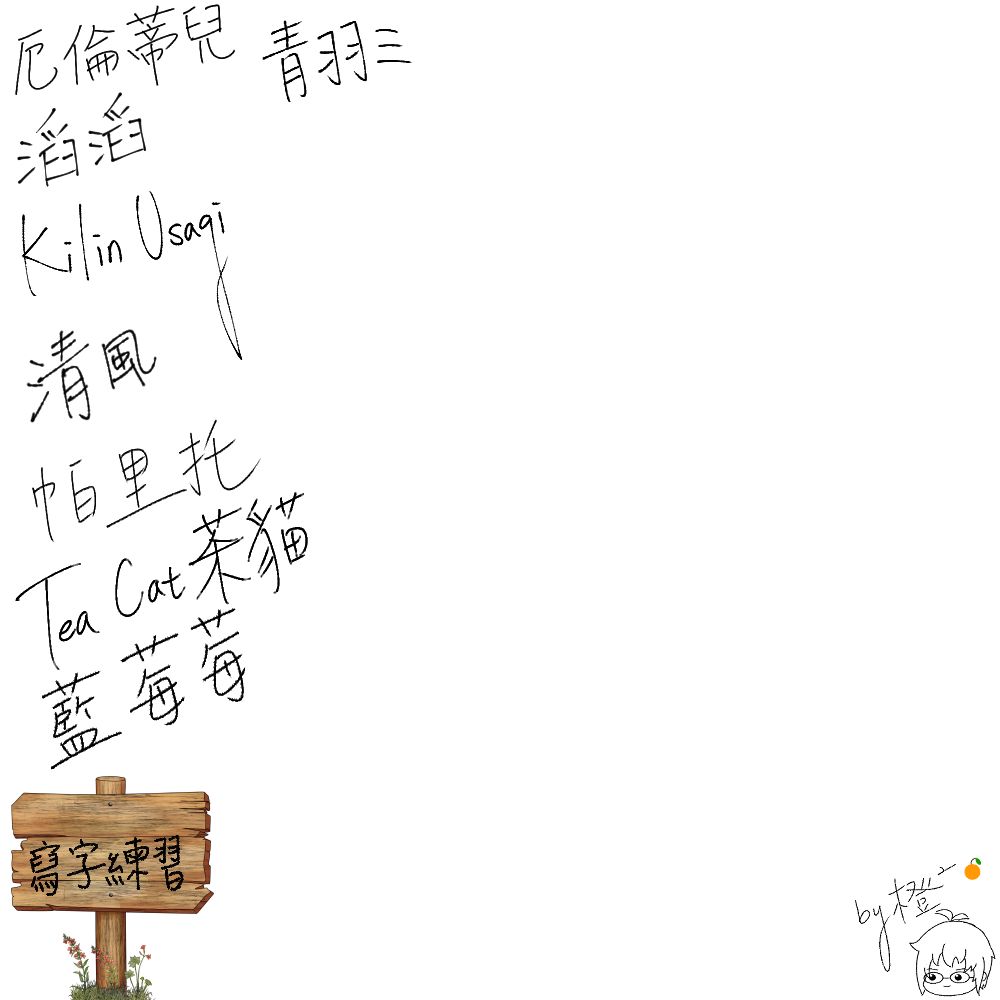 厄倫蒂兒
青羽三
滔滔
Kilin Usagi
清風
帕里托
Tea Cat 茶貓
藍莓莓
寫字練習
by 橙²